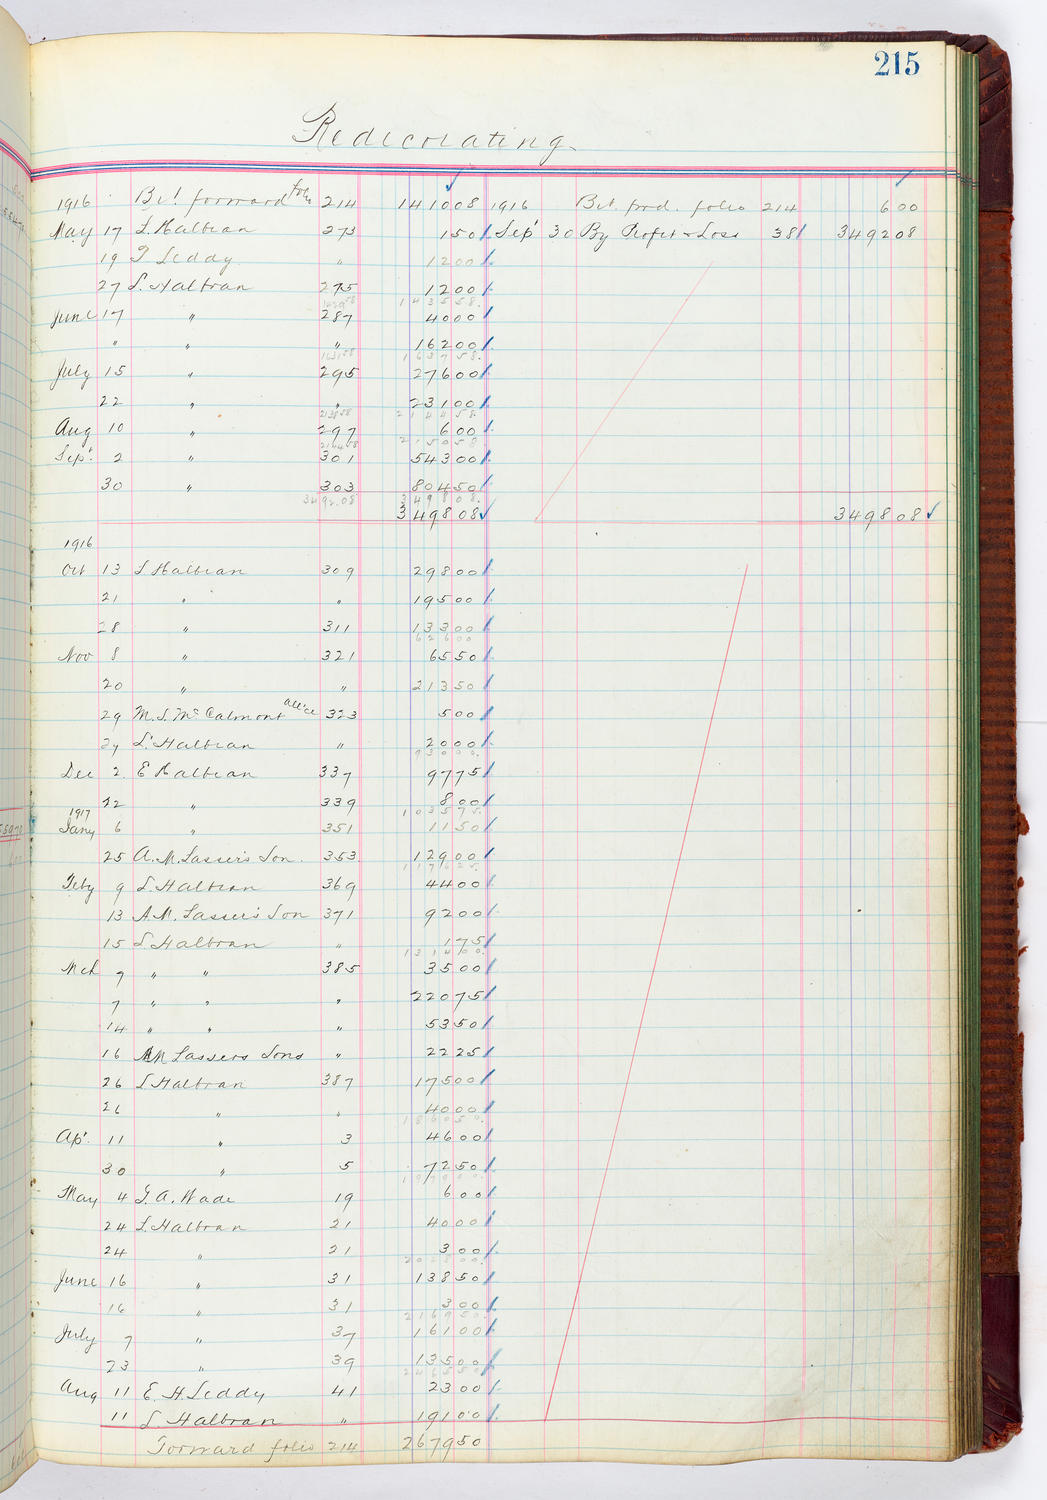 215
Redecorating
1916 Bt. forward folio 214 141008 1916 Bt. frd. folio 214 600
May 17 L. Halbran 273 150 Sep' 30 By Profit & Loss 381 349208
19 T Leddy " 1200
27 L. Halbran 275 1200
143558
June 17 " 287 4000
" " " 16200
163158 163758
July 15 " 295 27600
22 " " 23100
213858 214458
Aug 10 " 297 600
215058
Sep'. 2 " 301 54300
30 " 303 80450
349208 349808
349808 349808
1916
Oct 13 L Halbran 309 29800
21 " " 19500
28 " 311 13300
62600
Nov 8 " 321 6550
20 " " 21350
29 M. J. McCalmont 323 500
29 L. Halbran " 2000
93000
Dec 2 E Halbran 337 9775
12 " 339 800
103575
1917
Jany 6 " 351 1150
25 A. M. Lassers Son. 353 12900
117625
Feby 9 L Halbran 369 4400
13 A. M. Lassers Son 371 9200
15 L Halbran " 175
131400
Mch 7 " " 385 3500
7 " " " 22075
14 " " " 5350
16 AM Lassers Sons " 2225
26 L Halbran 387 17500
26 " " 4000
186050
Ap'. 11 " 3 4600
30 " 5 7250
197900
May 4 T. A. Wade 19 600
24 L Halbran 21 4000
24 " 21 300
202800
June 16 " 31 13850
16 " 31 300
216950
July 7 " 37 16100
23 " 39 13500
246550
Aug 11 E. H. Leddy 41 2300
11 L. Halbran " 19100
Forward folio 214 267950